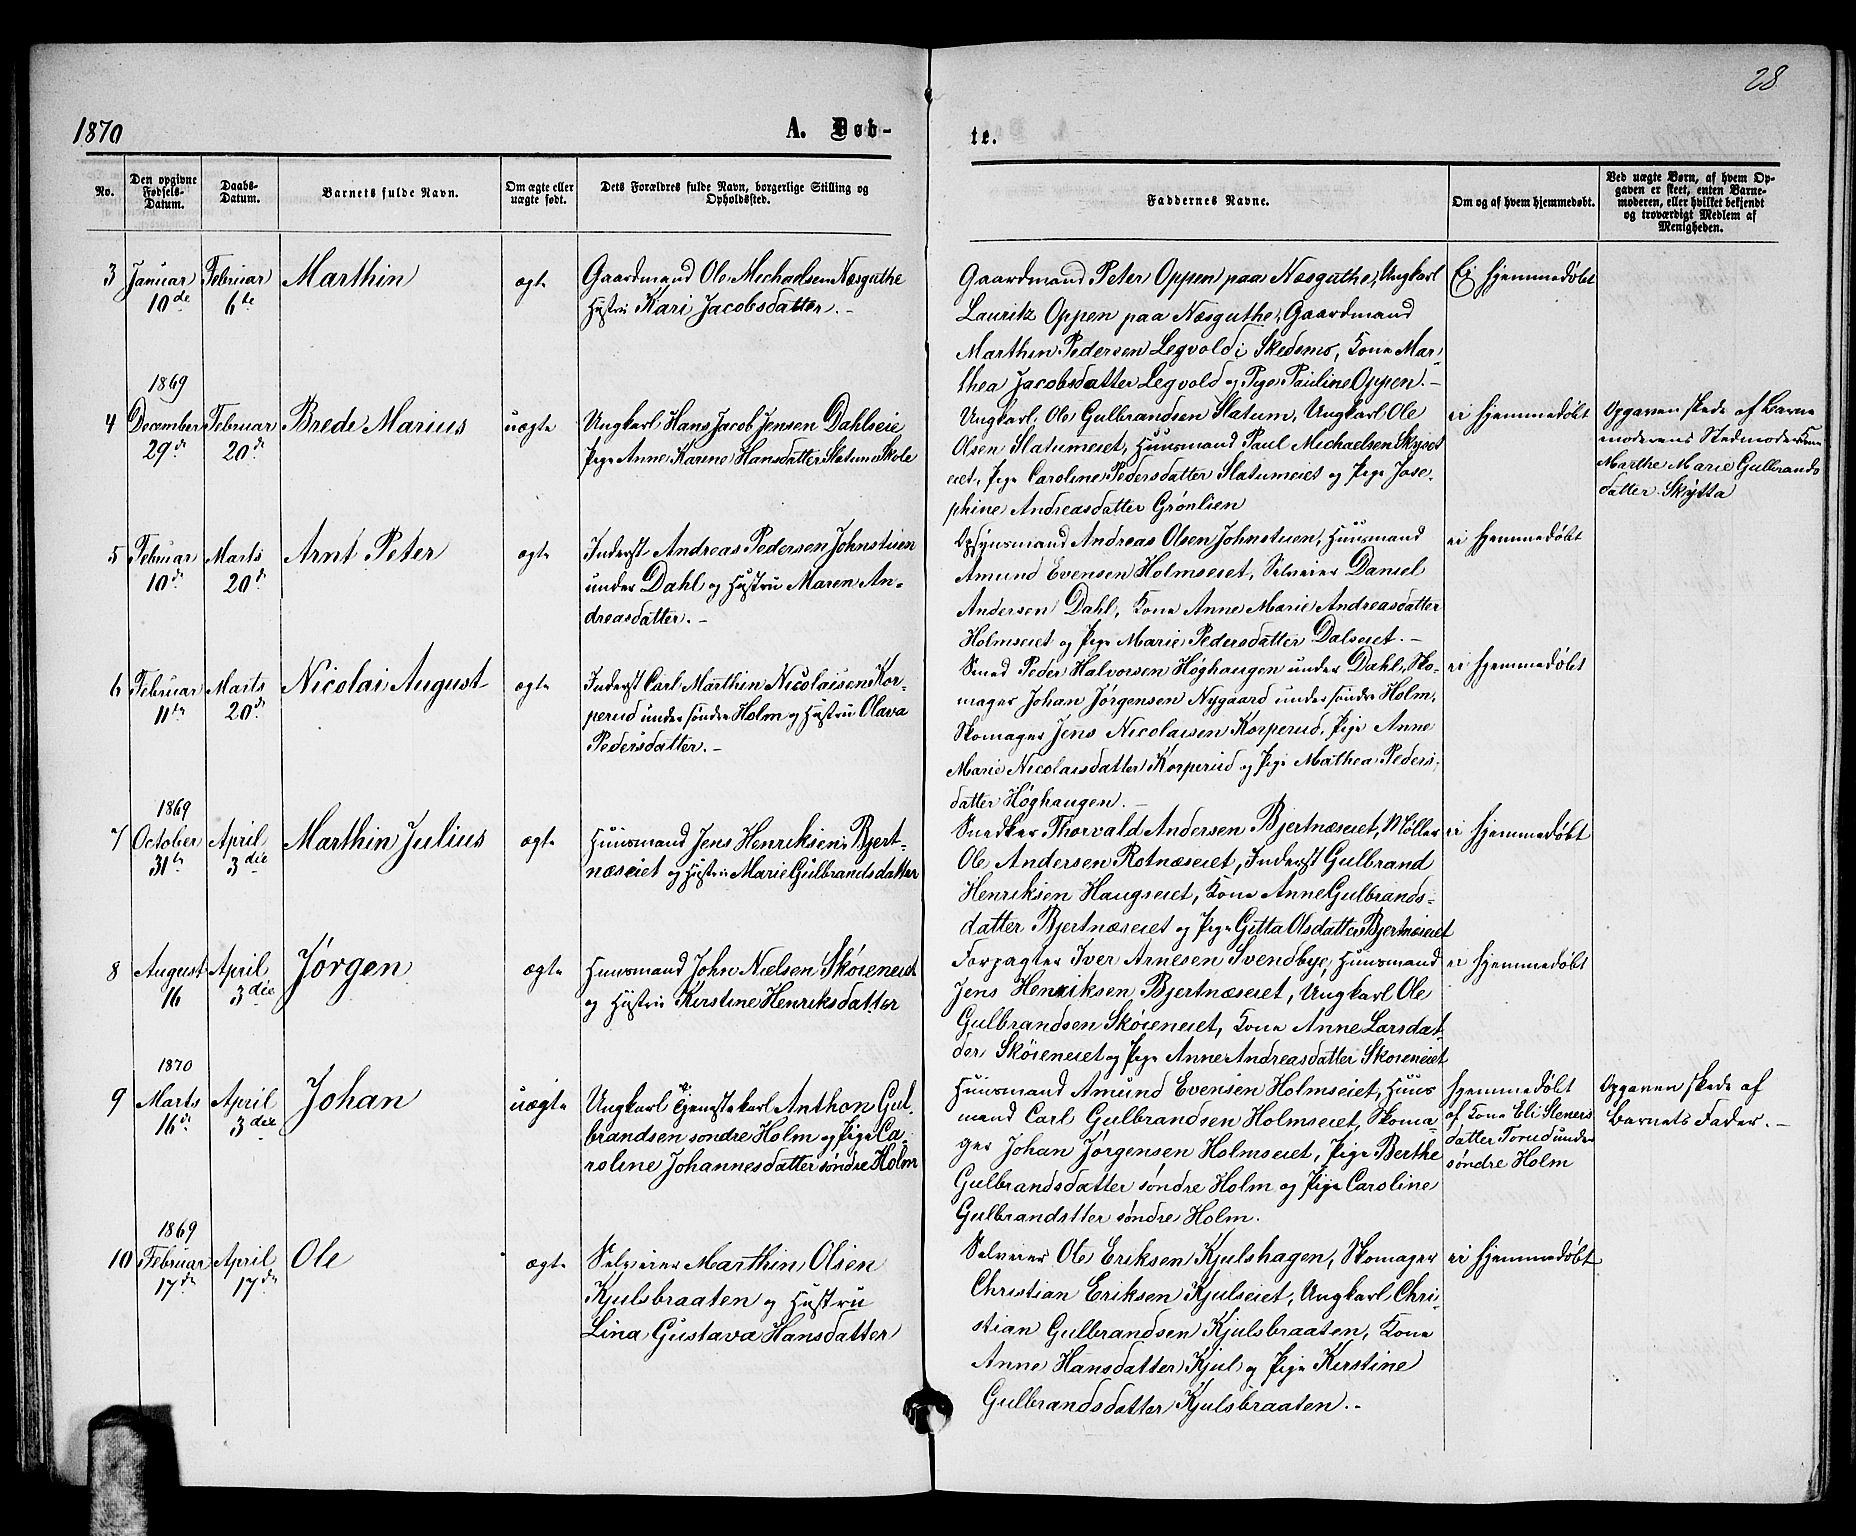 28
1870
A. Døb-
te.
No.
Den opgivne
Fødsels-
Datum.
Daabs-
Datum.
Barnets fulde Navn.
Om ægte eller
uægte født.
Dets Forældres fulde Navn, borgerlige Stilling og
Opholdssted.
Faddernes Navne.
Om og af hvem hjemmedøbt.
Ved uægte Børn, af hvem Op-
gaven er skeet, enten Barne-
moderen, eller hvilket bekjendt
og troværdigt Medlem af
Menigheden.
3
Januar
10de
Februar
6te
Marthin
ægte
Gaardmand Ole Michaelsen Næsguthe
Hustru Kari Jacobsdatter.-
Gaardmand Peter Oppen paa Næsguthe, Ungkarl
Lauritz Oppen paa Næsguthe, Gaardmand
Marthin Pedersen Legvold i Skedsmo, Kone Mar-
thea Jacobsdatter Legvold og Pige Pauline Oppen.-
Ei hjemmedøbt
4
1869
December
29de
Februar
20de
Brede Marius
uægte
Ungkarl Hans Jacob Jensen Dahlseie
Pige Anne Karine Hansdatter Slatum Skole
Ungkarl Ole Gulbrandsen Slatum, Ungkarl Ole
Olsen Slatumeiet, Huusmand Paul Michaelsen Skyset
eiet, Pige Caroline Pedersdatter Slatumeiet og Pige Jose-
phine Andreasdatter Grønlien
ei hjemmedøbt
Opgaven skede af Barne
moderens Stedmoder Kone
Marthe Marie Gulbrands
datter Skytta
5
Februar
10de
Marts
20de
Arnt Peter
ægte
Inderst Andreas Pedersen Johnstuen
under Dahl og Hustru Maren An-
dreasdatter.-
Opsynsmand Andreas Olsen Johnstuen, Huusmand
Amund Evensen Holmseiet, Selveier Daniel
Andersen Dahl, Kone Anne Marie Andreasdatter
Holmseiet og Pige Marie Pedersdatter Dalseiet.-
ei hjemmedøbt
6
Februar
11te
Marts
20de
Nicolai August
ægte
Inderst Carl Marthin Nicolaisen Kor-
perud under søndre Holm og Hustru Olava
Pedersdatter.-
Smed Peder Halvorsen Høghaugen under Dahl, Sko-
mager Johan Jørgensen Nygaard under søndre Holm,
Skomager Jens Nicolaisen Korperud, Pige Anne
Marie Nicolaisdatter Korperud og Pige Mathea Peders-
datter Høghaugen.-
ei hjemmedøbt
7
1869
October
31te
April
3die
Marthin Julius
ægte
Huusmand Jens Henriksen Bjert-
næseiet og Hustru Marie Gulbrandsdatter
Snedker Thorvald Andersen Bjertnæseiet, Møller
Ole Andersen Rotnæseiet, Inderst Gulbrand
Henriksen Haugseiet, Kone Anne Gulbrands-
datter Bjertnæseiet og Pige Gitta Olsdatter Bjertnæseiet
ei hjemmedøbt
8
August
16
April
3die
Jørgen
ægte
Huusmand John Nielsen Skøieneiet
og Hustru Kirstine Henriksdatter
Forpagter Iver Arnesen Svendbye, Huusmand
Jens Henriksen Bjertnæseiet, Ungkarl Ole
Gulbrandsen Skøieneiet, Kone Anne Larsdat-
der Skøieneiet og Pige Anne Andreasdatter Skøieneiet
ei hjemmedøbt
9
1870
Marts
16de
April
3die
Johan
uægte
Ungkarl og Tjenestekarl Anthon Gul-
brandsen søndre Holm og Pige Ca-
roline Johannesdatter søndre Holm
Huusmand Amund Evensen Holmseiet, Huus
mand Carl Gulbrandsen Holmseiet, Skoma-
ger Johan Jørgensen Holmseiet, Pige Berthe
Gulbrandsdatter søndre Holm og Pige Caroline
Gulbrandstter søndre Holm.
hjemmedøbt
af Kone Eli Steners
datter Torud under
søndre Holm
Opgaven skede af
Barnets Fader.-
10
1869
Februar
17de
April
17de
Ole
ægte
Selveier Marthin Olsen
Kjulsbraaten og Hustru
Lina Gustava Hansdatter
Selveier Ole Eriksen Kjulshagen, Skomager
Christian Eriksen Kjulseiet, Ungkarl Chri-
stian Gulbrandsen Kjulsbraaten, Kone
Anne Hansdatter Kjul og Pige Kirstine
Gulbrandsdatter Kjulsbraaten.-
ei hjemmedøbt